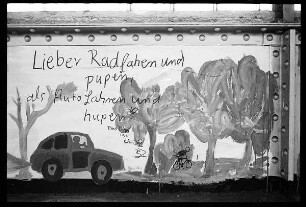 Lieber Radfahren und
pupen,
als Autofahren und
hupen.